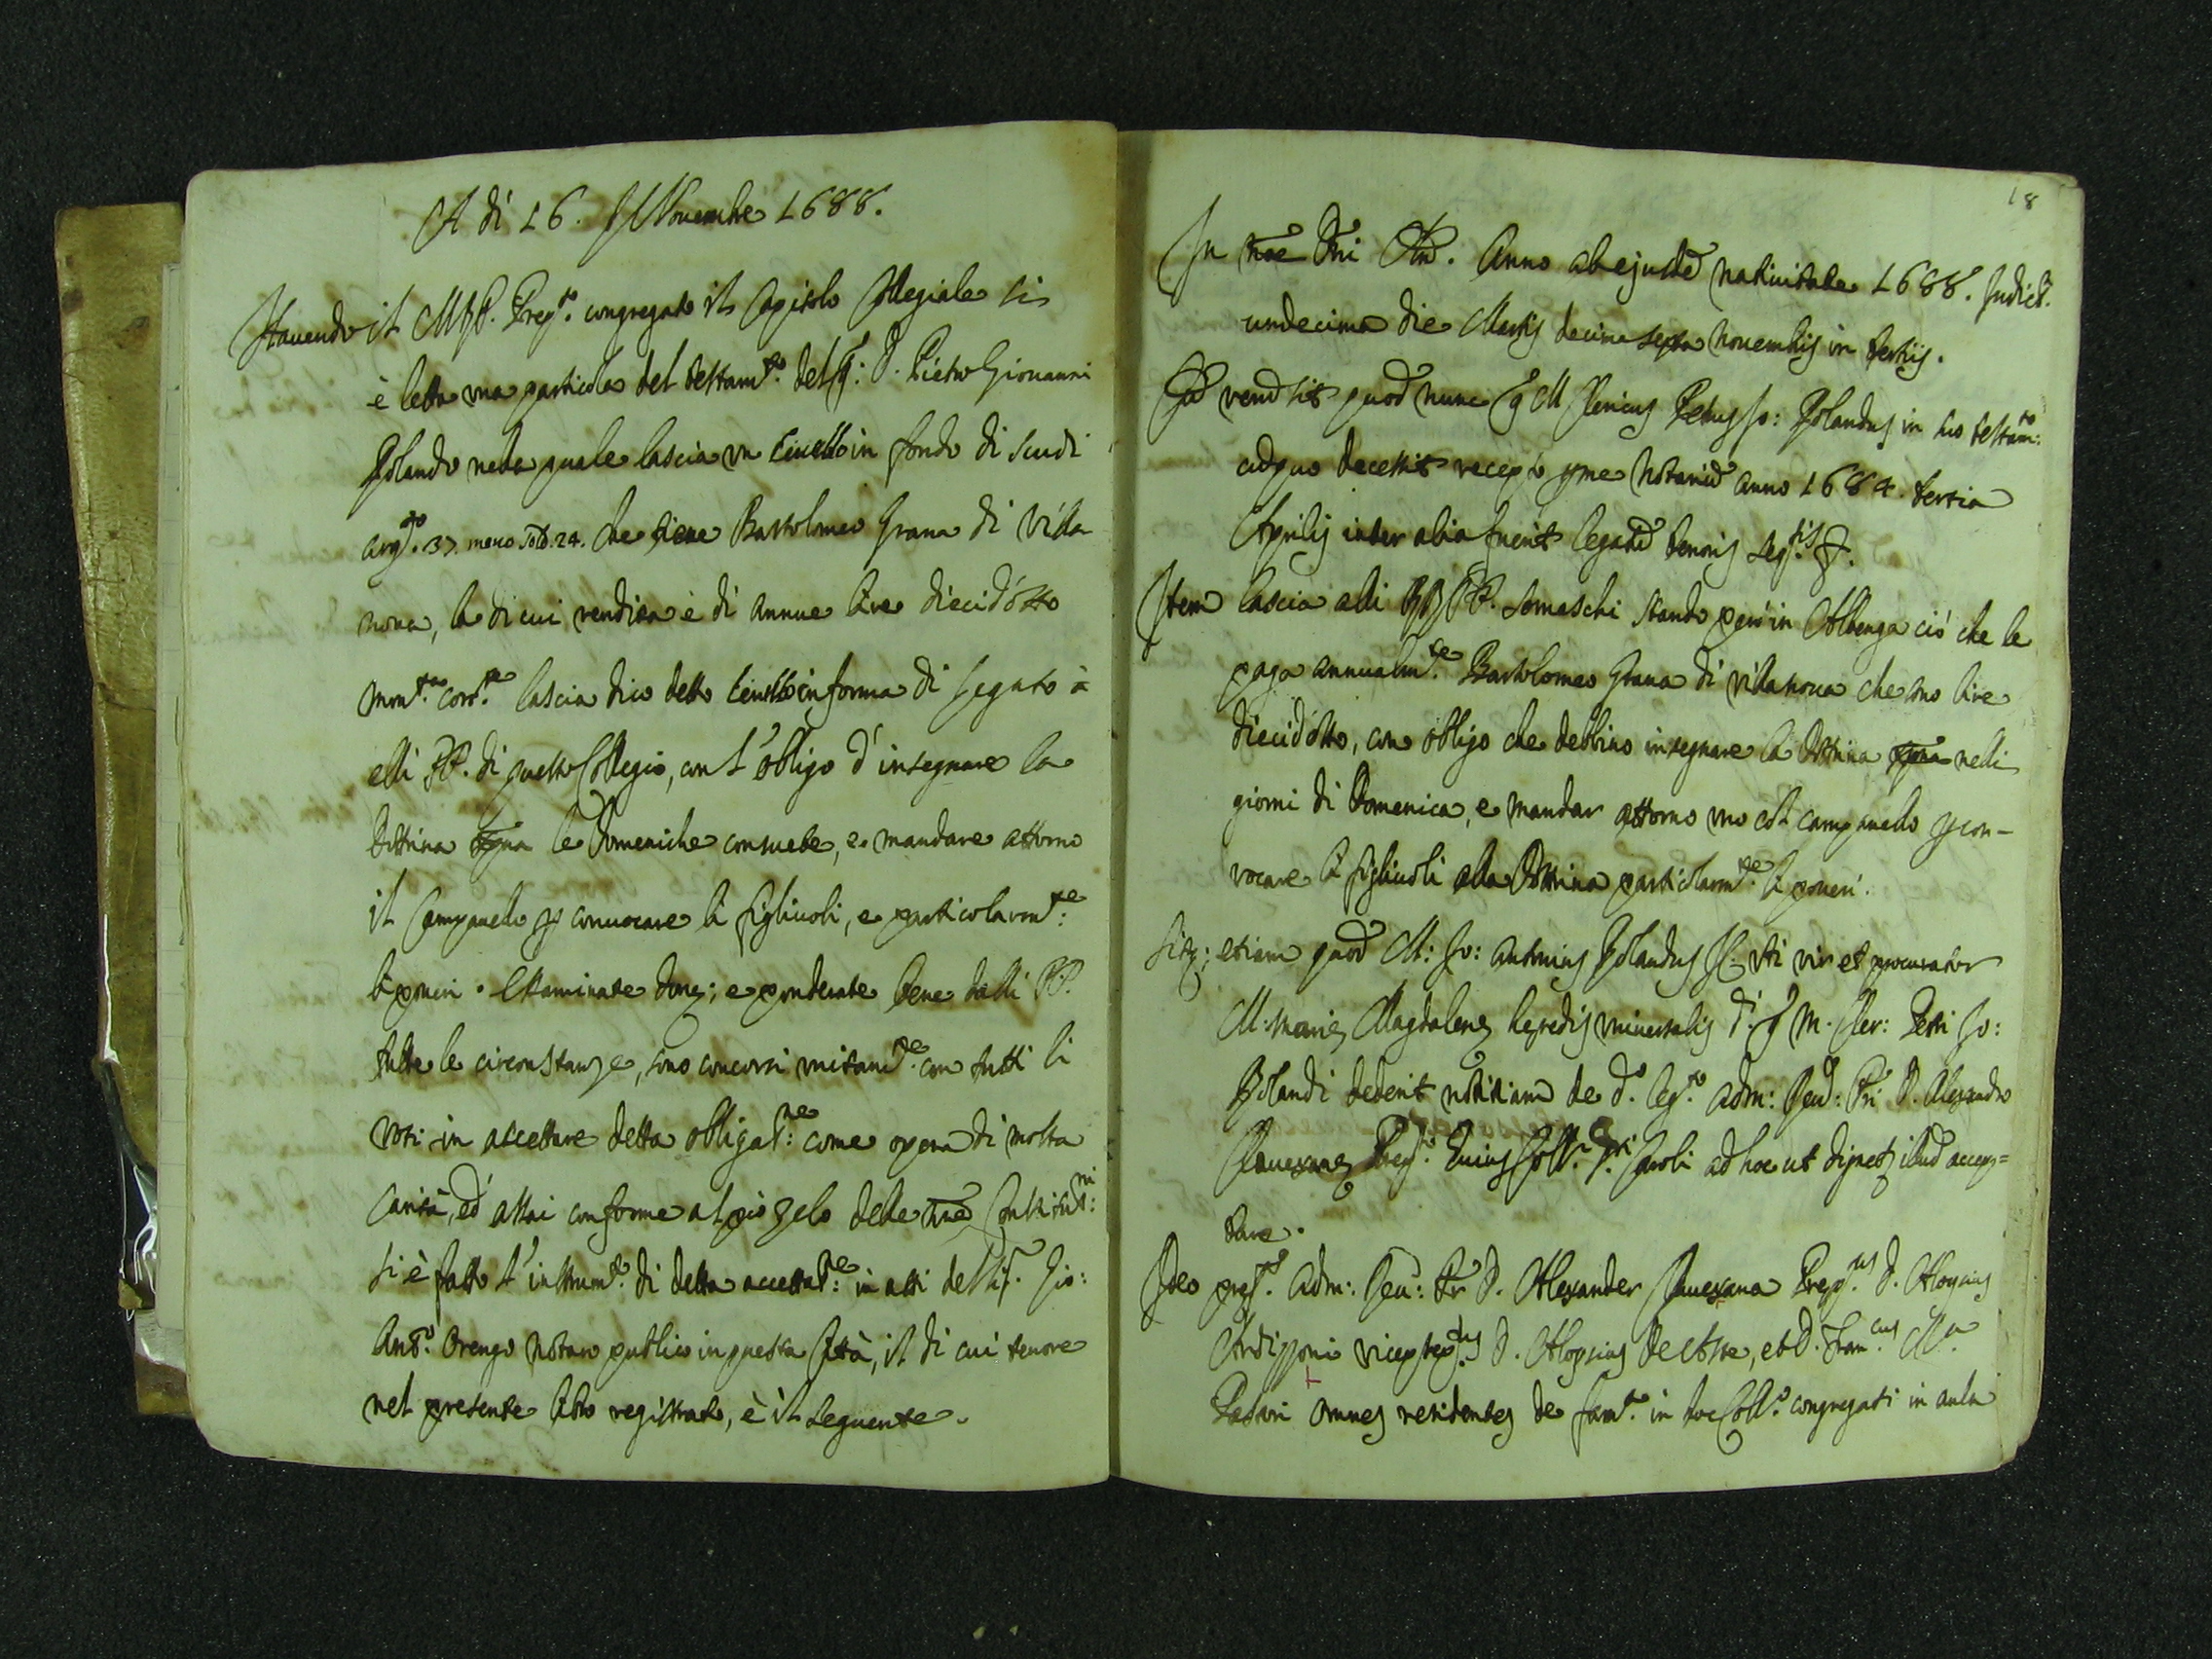 A di 16. Novembre 1688.
Havendo il M. R. P. Prep.to congregato il Capitolo Collegiale si
è letta una particola del testam.to del q: P. Pietro Giovanni
Rolando nella quale lascia un Censo in fondo di scudi
arg.to 37. meno sold. 24. che tiene Bartolomeo Grana di Villa
nova, la di cui rendita è di annue lire diecid'otto
mon.ta cor.te lascia dico detto in forma di legato à
elli PP. di questo Collegio, con l'obligo d'insegnare la
Dottrina xpna le Domeniche consuete, e mandare attorno
il Campanello p convocare li figliuoli, e particolarm.te
li poveri. Essaminate donq; e ponderate bene dalli PP.
tutte le circonstanze, sono concorsi unitam.te con tutti li
voti in accettare detta obligat.ne: come opera di molta
carità, ed assai conforme al pio zelo delle nre Constitut.ni:
si è fatto l'instrum.to di detta accettat.ne: in atti del Sig.r Gio:
Ant.o Orengo Notaro publico in questa Città, il di cui tenore
nel presente libro registrato, è il seguente.
18
In noe Dni Am. Anno ab ejusdē nativitate 1688. Indict.
undecima die Martis decima sexta Novembris in tertijs.
Cū verū sit quod nunc q M Clericus Petrus Jo: Rolandus in suo testam:to
cū quo decessit recepto p me Notariū anno 1684. tertia
Aprilis inter alia fuerit legatū tenoris seq.tis
Item lascia alli RR PP. Somaschi stando però in Albenga ciò che le
paga annualm.te Bartolomeo Grana di villanova che sono lire
diecid'otto, con obligo che debbino insegnare la Dottrina xpna nelli
giorni di Domenica, e mandar attorno uno col campanello p con-
vocare li figliuoli alla Dottrina particolarm.te li poveri.
Sitq; etiam quod M: Jo: Antonius Rolandus uti vir et procurator
M: Mariæ Magdalenæ heredis universalis d. q M. Cler: Petri Jo:
Rolandi dederit notitiam de d.o leg.to adm: Rev: Pri D. Alexandro
Cavexanæ Prep.to huius Coll.i Caroli ad hoc ut dignetur illud accep=
tare.
Ideo pref.s adm: Rev: Pr D. Alexander Cavexana Prep.tus D. Aloysius
Ardizzoni vicep D. Aloysius De Asse, et D. Fran.cus M.a
Pessari omnes residentes de fam.a in hoc Coll.o congregati in aula